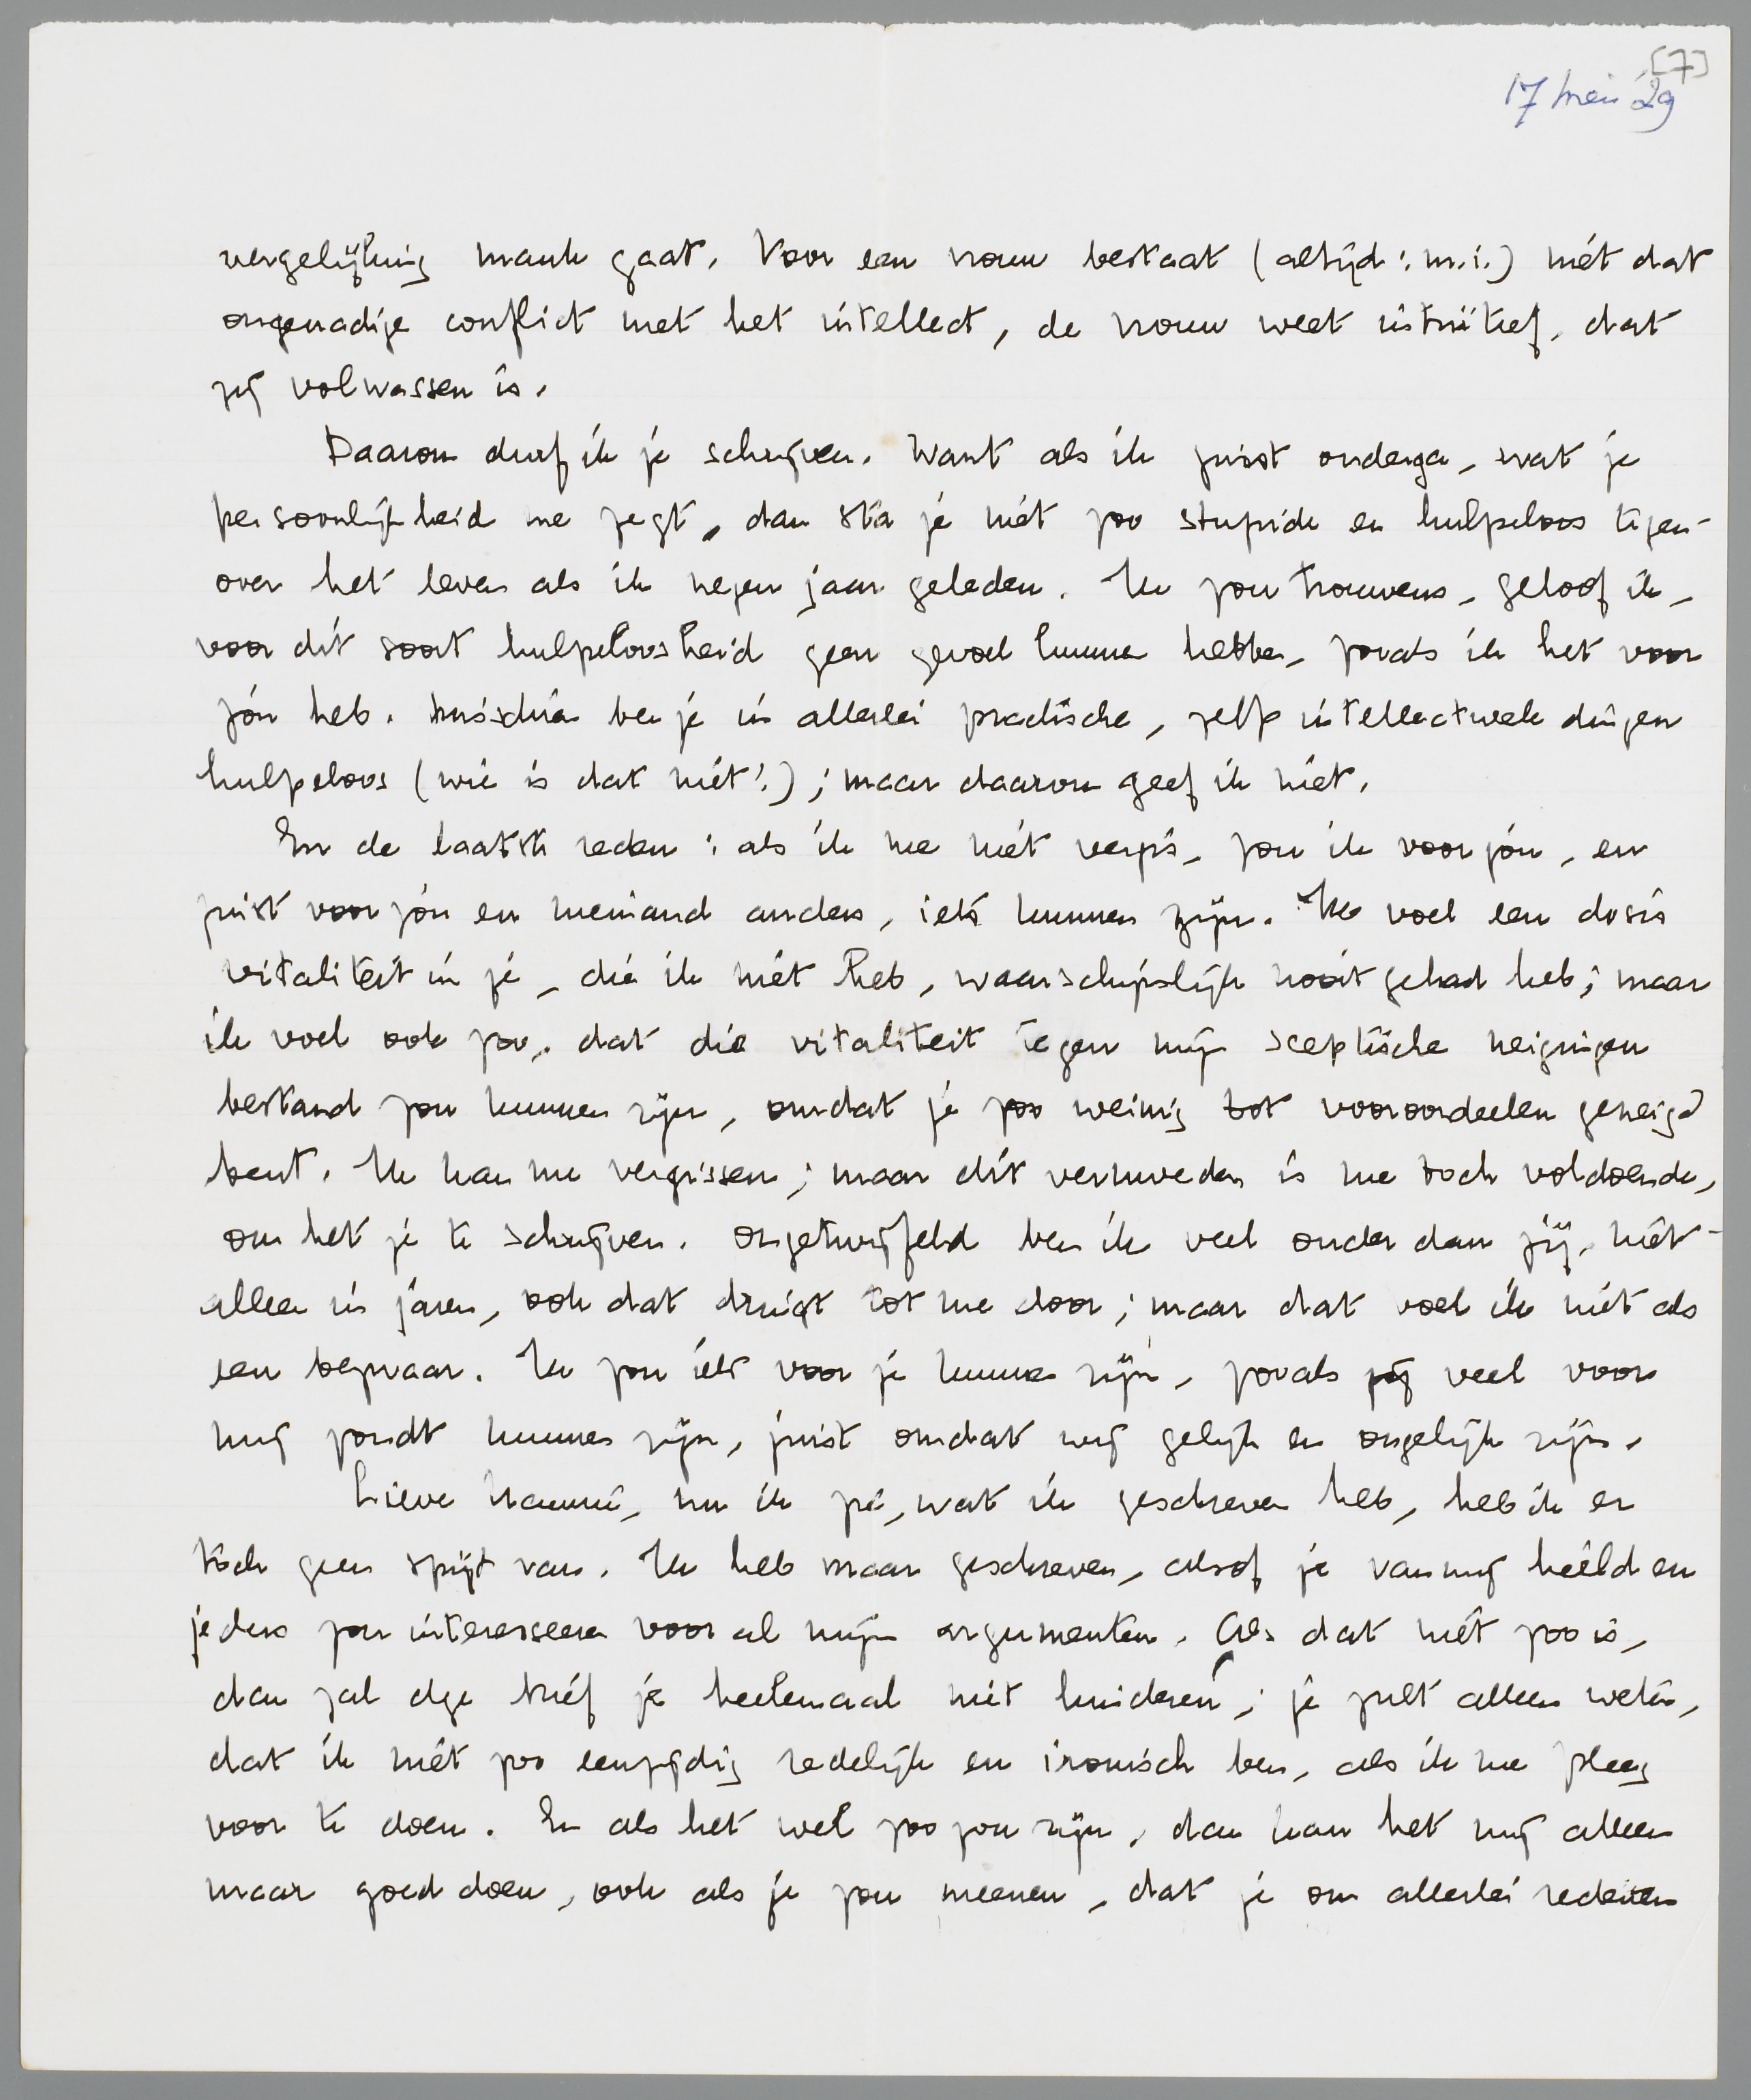 [7]
17 mei '29
vergelijking mank gaat. Voor een vrouw bestaat (altijd: m.i.) niet dat
ongenadige conflict met het intellect, de vrouw weet intuïtief, dat
zij volwassen is.
Daarom durf ik je schrijven. Want als ik juist onderga, wat je
persoonlijkheid me zegt, dan sta je niet zoo stupide en hulpeloos tegen-
over het leven als ik negen jaar geleden. Ik zou trouwens, geloof ik,
voor dit soort hulpeloosheid geen gevoel kunnen hebben, zooals ik het voor
jóu heb. Misschien ben je in allerlei practische, zelfs intellectueele dingen
hulpeloos (wie is dat niet!); maar daarom geef ik niet.
En de laatste reden: als ik me niet vergis, zou ik voor jóu, en
juist voor jóu en niemand anders, iets kunnen zijn. Ik voel een dosis
vitaliteit in je, die ik niet heb, waarschijnlijk nooit gehad heb; maar
ik voel ook zoo, dat die vitaliteit tegen mijn sceptische neigingen
bestand zou kunnen zijn, omdat je zoo weinig tot vooroordeelen geneigd
bent. Ik kan me vergissen; maar dit vermoeden is me toch voldoende,
om het je te schrijven. Ongetwijfeld ben ik veel ouder dan jij, niet
alleen in jaren, ook dat dringt tot me door; maar dat voel ik niet als
een bezwaar. Ik zou iets voor je kunnen zijn, zooals jij veel voor
mij zoudt kunnen zijn, juist omdat wij gelijk en ongelijk zijn.
Lieve Hannie, nu ik zie, wat ik geschreven heb, heb ik er
toch geen spijt van. Ik heb maar geschreven, alsof je van mij hield en
je dus zou interesseeren voor al mijn argumenten. Als dat niet zoo is,
dan zal deze brief je heelemaal niet hinderen; je zult alleen weten,
dat ik niet zoo eenzijdig redelijk en ironisch ben, als ik me pleeg
voor te doen. En als het wel zoo zou zijn, dan kan het mij alleen
maar goed doen, ook als je zou meenen, dat je om allerlei redenen